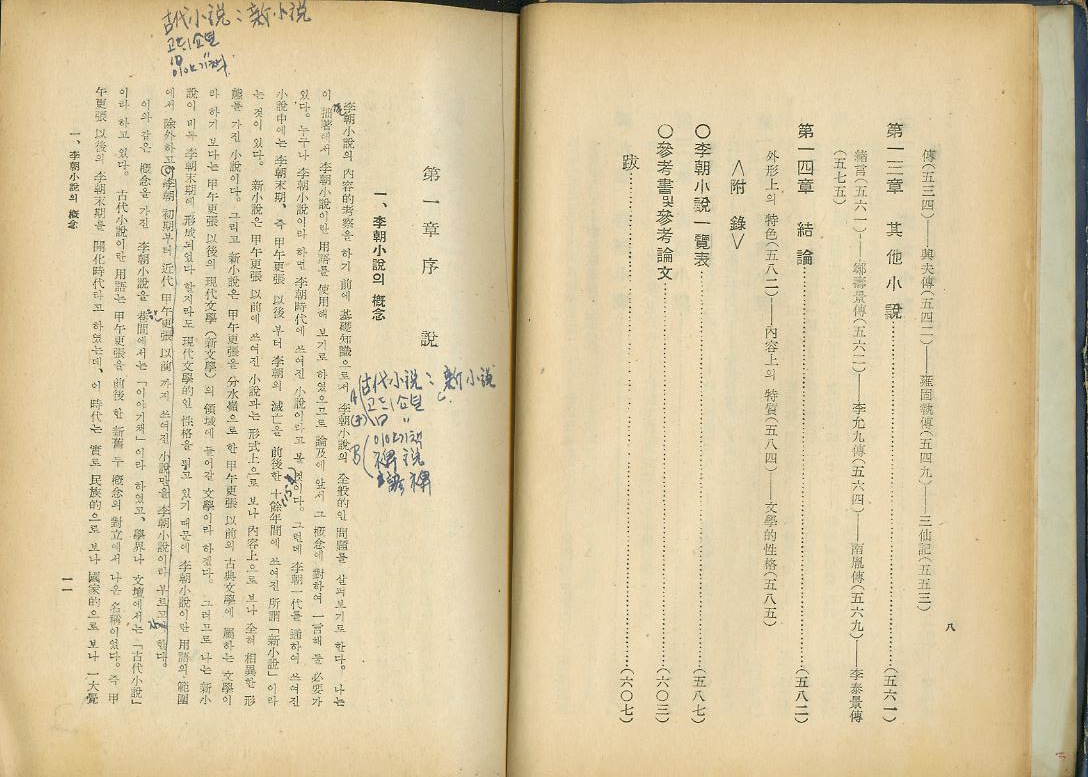 傳(五三四)——興夫傳(五四二)——雍固執傳(五四九)——三仙記(五五三)
第一三章 其他小說……(五六一)
緖言(五六一)——鄒壽景傳(五六二)——李允九傳(五六四)——南胤傳(五六九)——李泰景傳
(五七五)
第一四章 結論……(五八二)
外形上의 特色(五八二)——內容上의 特質(五八四)——文學的性格(五八五)
〈附錄〉
○李朝小說一覽表……(五八七)
○參考書및參考論文……(六〇三)
跋……(六〇七)
八
古代小说：新小说
고듸소셜
이야기책
第一章 序說
一、李朝小說의 槪念
李朝小說의 內容的考察을 하기 前에 基礎知識으로서 李朝小說의 全般的인 問題를 살펴보기로 한다. 나는
이 拙著에서 李朝小說이란 用語를 使用해 보기로 하였으므로 論及에 앞서 그 槪念에 對하여 一言해 둘 必要가
있다. 누구나 李朝小說이라 하면 李朝時代에 쓰여진 小說이라고 볼 것이다. 그런데 李朝一代를 通하여 쓰여진
小說中에는 李朝末期, 즉 甲午更張 以後 부터 李朝의 滅亡을 前後한 十餘年間에 쓰여진 所謂「新小說」이라
는 것이 있다. 新小說은 甲午更張 以前에 쓰여진 小說과는 形式上으로 보나 內容上으로 보나 全혀 相異한 形
態를 가진 小說이다. 그리고 新小說은 甲午更張을 分水嶺으로 한 甲午更張 以前의 古典文學에 屬하는 文學이
라 하기 보다는 甲午更張 以後의 現代文學(新文學)의 領域에 들어갈 文學이라 하겠다. 그러므로 나는 新小
說이 비록 李朝末期에 形成되였다 할지라도 現代文學的인 性格을 띄고 있기 때문에 李朝小說이란 用語의 範圍
에서 除外하고 李朝 初期부터 近代 甲午更張 以前 까지 쓰여진 小說만을 李朝小說이라 부르고저 한다.
이와 같은 槪念을 가진 李朝小說을 巷間에서는「이야기책」이라 하였고, 學界나 文壇에서는「古代小說」
이라 하고 있다. 古代小說이란 用語는 甲午更張을 前後한 新舊 두 槪念의 對立에서 나온 名稱이였다. 즉 甲
午更張 以後의 李朝末期를 開化時代라고 하였는데, 이 時代는 實로 民族的으로 보나 國家的으로 보나 一大覺
古代小说：新小说
고듸소셜
이야기책
稗说
一、李朝小說의 槪念
一一